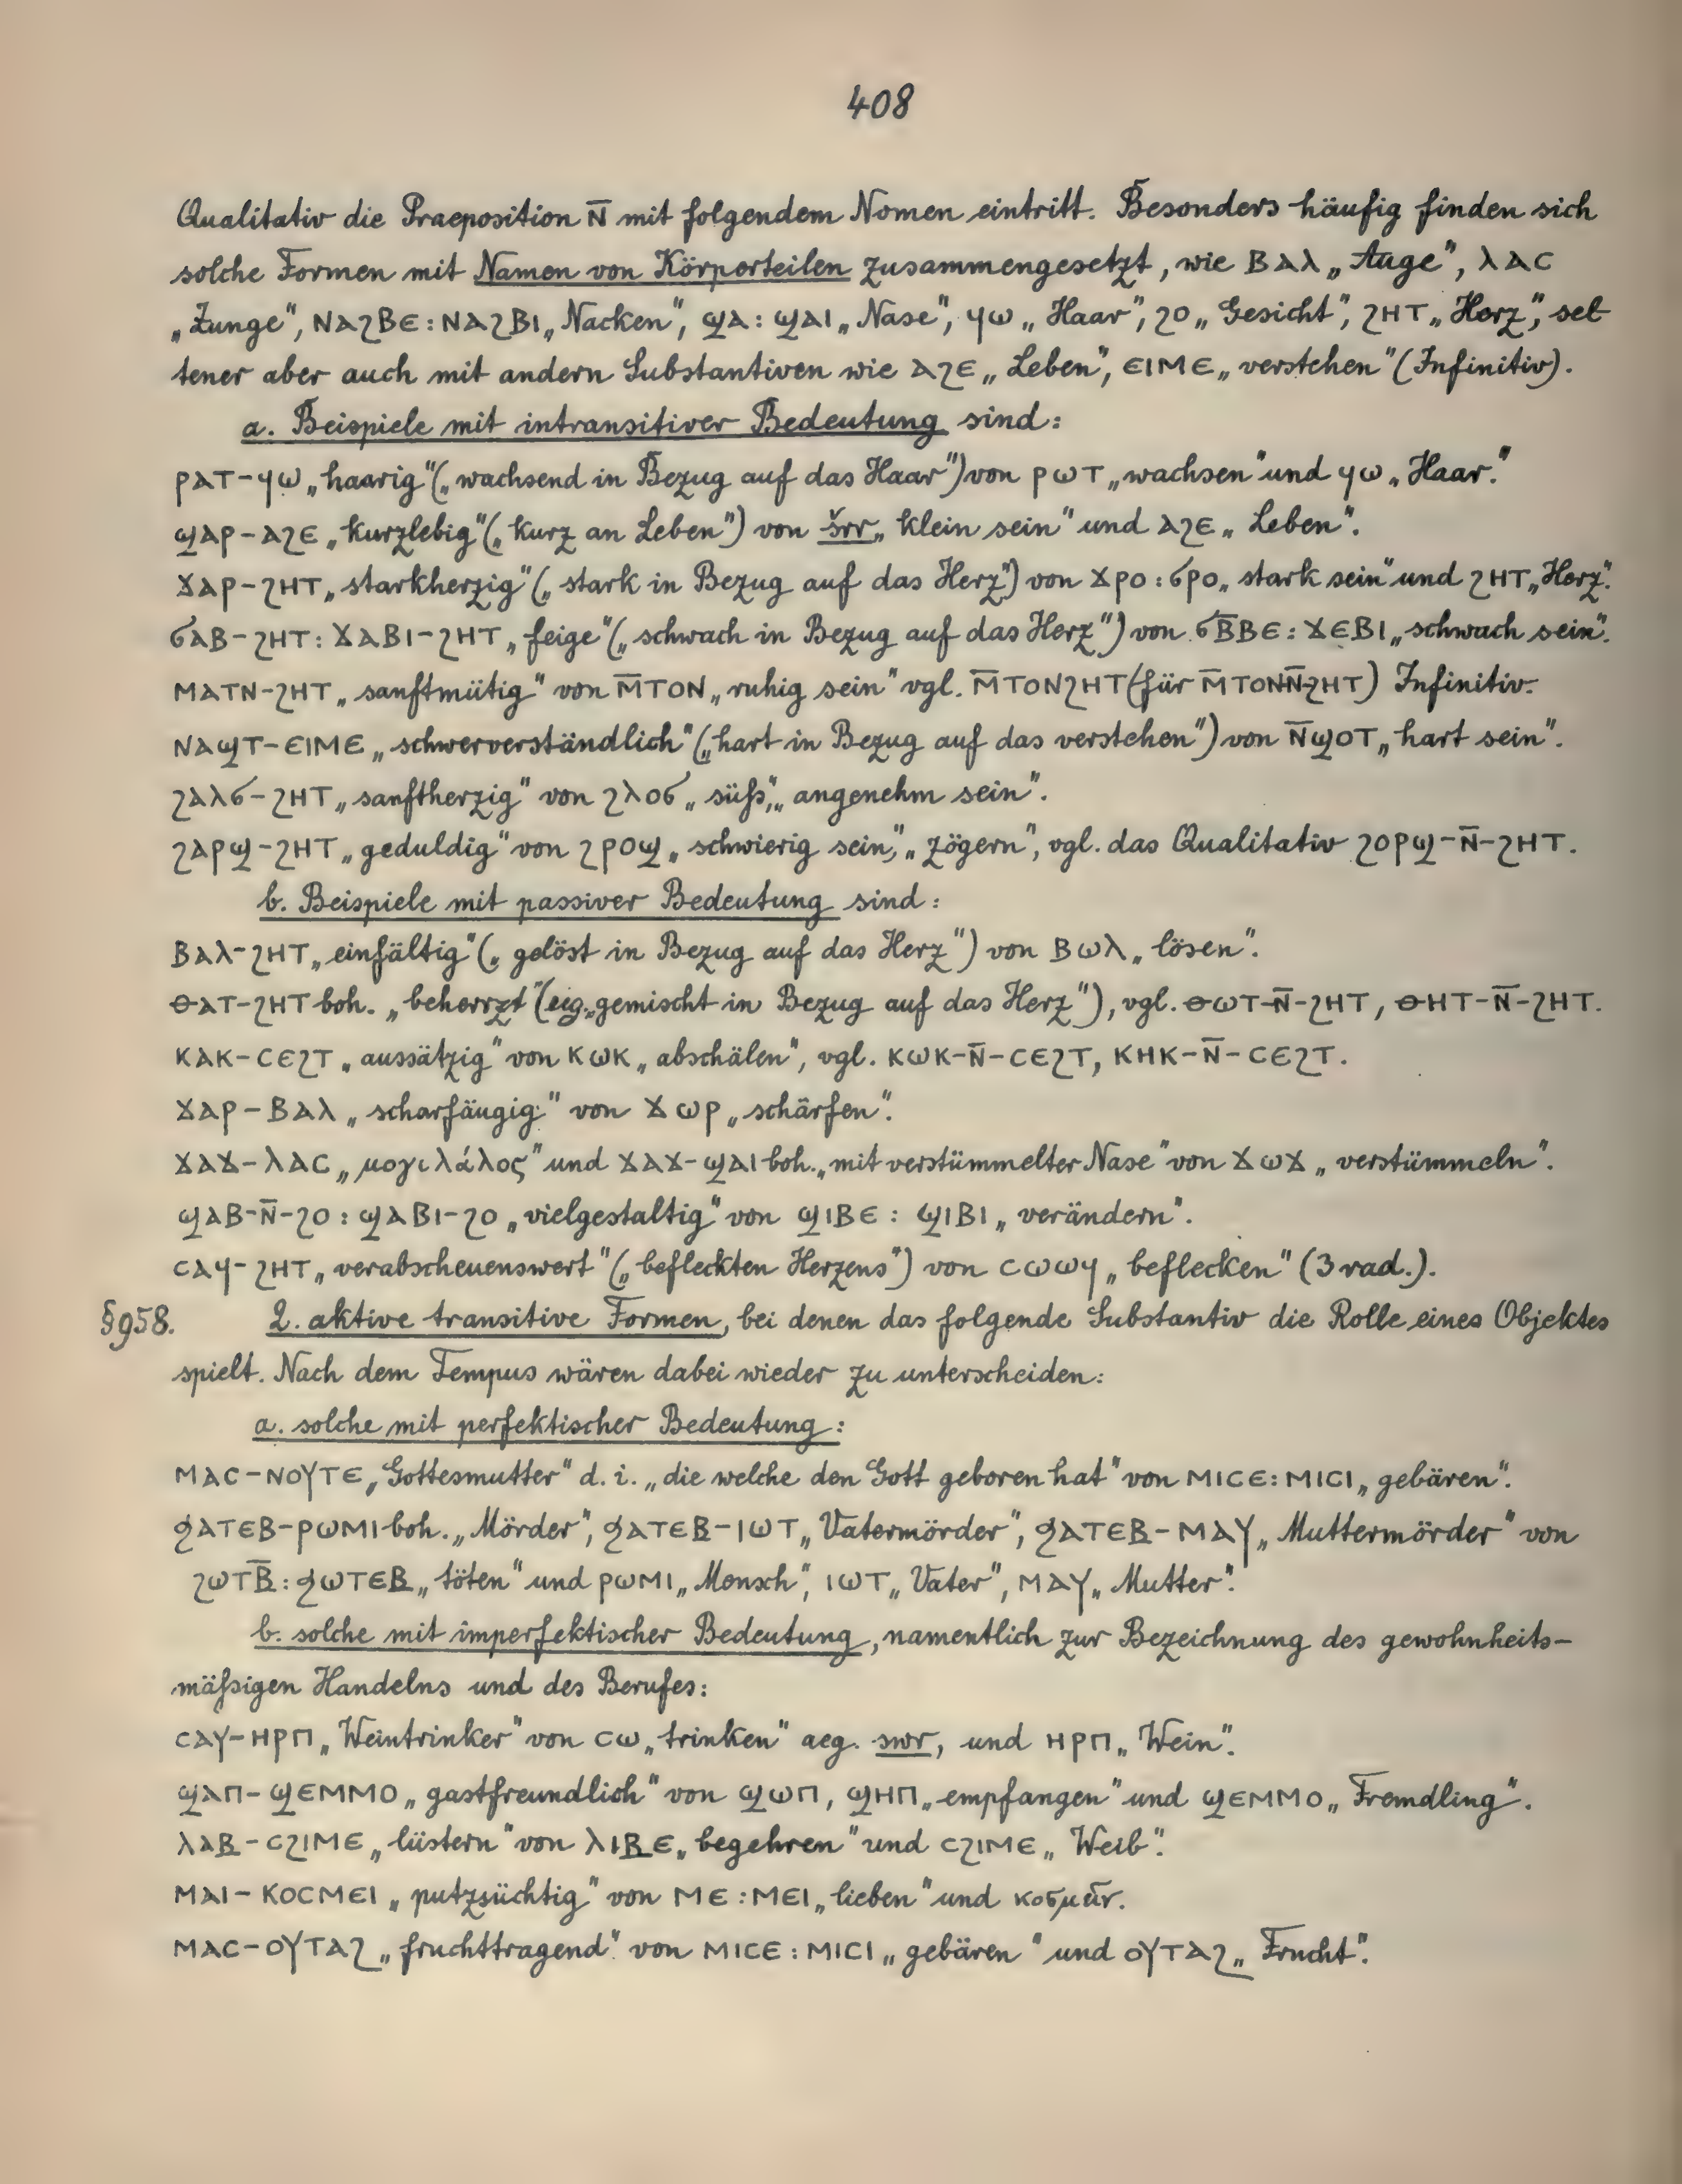 408
Qualitativ die Praeposition ⲛ̄ mit folgendem Nomen eintritt. Besonders häufig finden sich
solche Formen mit Namen von Körperteilen zusammengesetzt, wie ⲃⲁⲗ „Auge", ⲗⲁⲥ
„Zunge", ⲛⲁϩⲃⲉ : ⲛⲁϩⲃⲓ „Nacken", ϣⲁ : ϣⲁⲓ „Nase", ϥⲱ „Haar", ϩⲟ „Gesicht", ϩⲏⲧ „Herz", sel-
tener aber auch mit andern Substantiven wie ⲁϩⲉ „Leben", ⲉⲓⲙⲉ „verstehen" (Infinitiv).
a. Beispiele mit intransitiver Bedeutung sind:
ⲣⲁⲧ-ϥⲱ „haarig" („wachsend in Bezug auf das Haar") von ⲣⲱⲧ „wachsen" und ϥⲱ „Haar."
ϣⲁⲣ-ⲁϩⲉ „kurzlebig" („kurz an Leben") von šrr „klein sein" und ⲁϩⲉ „Leben".
ϫⲁⲣ-ϩⲏⲧ „starkherzig" („stark in Bezug auf das Herz") von ϫⲣⲟ : ϭⲣⲟ „stark sein" und ϩⲏⲧ „Herz".
ϭⲁⲃ-ϩⲏⲧ : ϫⲁⲃⲓ-ϩⲏⲧ „feige" („schwach in Bezug auf das Herz") von ϭⲃ̄ⲃⲉ : ϫⲉⲃⲓ „schwach sein".
ⲙⲁⲧⲛ-ϩⲏⲧ „sanftmütig" von ⲙ̄ⲧⲟⲛ „ruhig sein" vgl. ⲙ̄ⲧⲟⲛϩⲏⲧ (für ⲙ̄ⲧⲟⲛ-ⲛ̄-ϩⲏⲧ) Infinitiv.
ⲛⲁϣⲧ-ⲉⲓⲙⲉ „schwerverständlich" („hart in Bezug auf das verstehen") von ⲛ̄ϣⲟⲧ „hart sein".
ϩⲁⲗϭ-ϩⲏⲧ „sanftherzig" von ϩⲗⲟϭ „süß", „angenehm sein".
ϩⲁⲣϣ-ϩⲏⲧ „geduldig" von ϩⲣⲟϣ „schwierig sein", „zögern", vgl. das Qualitativ ϩⲟⲣϣ-ⲛ̄-ϩⲏⲧ.
b. Beispiele mit passiver Bedeutung sind:
ⲃⲁⲗ-ϩⲏⲧ „einfältig" („gelöst in Bezug auf das Herz") von ⲃⲱⲗ „lösen".
ⲑⲁⲧ-ϩⲏⲧ boh. „beherrzt" (eig. „gemischt in Bezug auf das Herz"), vgl. ⲑⲱⲧ-ⲛ̄-ϩⲏⲧ, ⲑⲏⲧ-ⲛ̄-ϩⲏⲧ.
ⲕⲁⲕ-ⲥⲉϩⲧ „aussätzig" von ⲕⲱⲕ „abschälen", vgl. ⲕⲱⲕ-ⲛ̄-ⲥⲉϩⲧ, ⲕⲏⲕ-ⲛ̄-ⲥⲉϩⲧ.
ϫⲁⲣ-ⲃⲁⲗ „scharfäugig" von ϫⲱⲣ „schärfen".
ϫⲁϫ-ⲗⲁⲥ „μογιλάλος" und ϫⲁϫ-ϣⲁⲓ boh. „mit verstümmelter Nase" von ϫⲱϫ „verstümmeln".
ϣⲁⲃ-ⲛ̄-ϩⲟ : ϣⲁⲃⲓ-ϩⲟ „vielgestaltig" von ϣⲓⲃⲉ : ϣⲓⲃⲓ „verändern".
ⲥⲁϥ-ϩⲏⲧ „verabscheuenswert" („befleckten Herzens") von ⲥⲱⲱϥ „beflecken" (3 rad.).
§958. 2. aktive transitive Formen, bei denen das folgende Substantiv die Rolle eines Objektes
spielt. Nach dem Tempus wären dabei wieder zu unterscheiden:
a. solche mit perfektischer Bedeutung:
ⲙⲁⲥ-ⲛⲟⲩⲧⲉ „Gottesmutter" d. i. „die welche den Gott geboren hat" von ⲙⲓⲥⲉ : ⲙⲓⲥⲓ „gebären".
ϧⲁⲧⲉⲃ-ⲣⲱⲙⲓ boh. „Mörder", ϧⲁⲧⲉⲃ-ⲓⲱⲧ „Vatermörder", ϧⲁⲧⲉⲃ-ⲙⲁⲩ „Muttermörder" von
ϩⲱⲧⲃ̄ : ϧⲱⲧⲉⲃ „töten" und ⲣⲱⲙⲓ „Mensch", ⲓⲱⲧ „Vater", ⲙⲁⲩ „Mutter".
b. solche mit imperfektischer Bedeutung, namentlich zur Bezeichnung des gewohnheits-
mäßigen Handelns und des Berufes:
ⲥⲁⲩ-ⲏⲣⲡ „Weintrinker" von ⲥⲱ „trinken" aeg. swr, und ⲏⲣⲡ „Wein".
ϣⲁⲡ-ϣⲉⲙⲙⲟ „gastfreundlich" von ϣⲱⲡ, ϣⲏⲡ „empfangen" und ϣⲉⲙⲙⲟ „Fremdling".
ⲗⲁⲃ-ⲥϩⲓⲙⲉ „lüstern" von ⲗⲓⲃⲉ „begehren" und ⲥϩⲓⲙⲉ „Weib".
ⲙⲁⲓ-ⲕⲟⲥⲙⲉⲓ „putzsüchtig" von ⲙⲉ : ⲙⲉⲓ „lieben" und κοσμεῖν.
ⲙⲁⲥ-ⲟⲩⲧⲁϩ „fruchttragend" von ⲙⲓⲥⲉ : ⲙⲓⲥⲓ „gebären" und ⲟⲩⲧⲁϩ „Frucht".